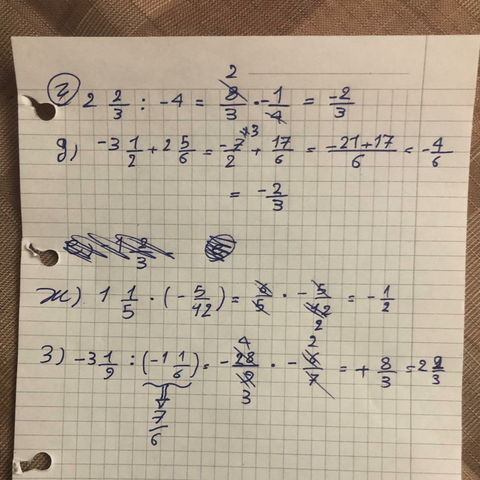 г) 2 2/3 : -4 = 8/3 · -1/4 = -2/3
2
д) -3 1/2 + 2 5/6 = -7/2 ×3 + 17/6 = -21+17/6 = -4/6
= -2/3
2/3
ж) 1 1/5 · (-5/42) = 6/5 · -5/12 = -1/2
2
з) -3 1/9 : (-1 1/6) = -28/9 · -6/7 = + 8/3 = 2 2/3
4 2
3
7/6